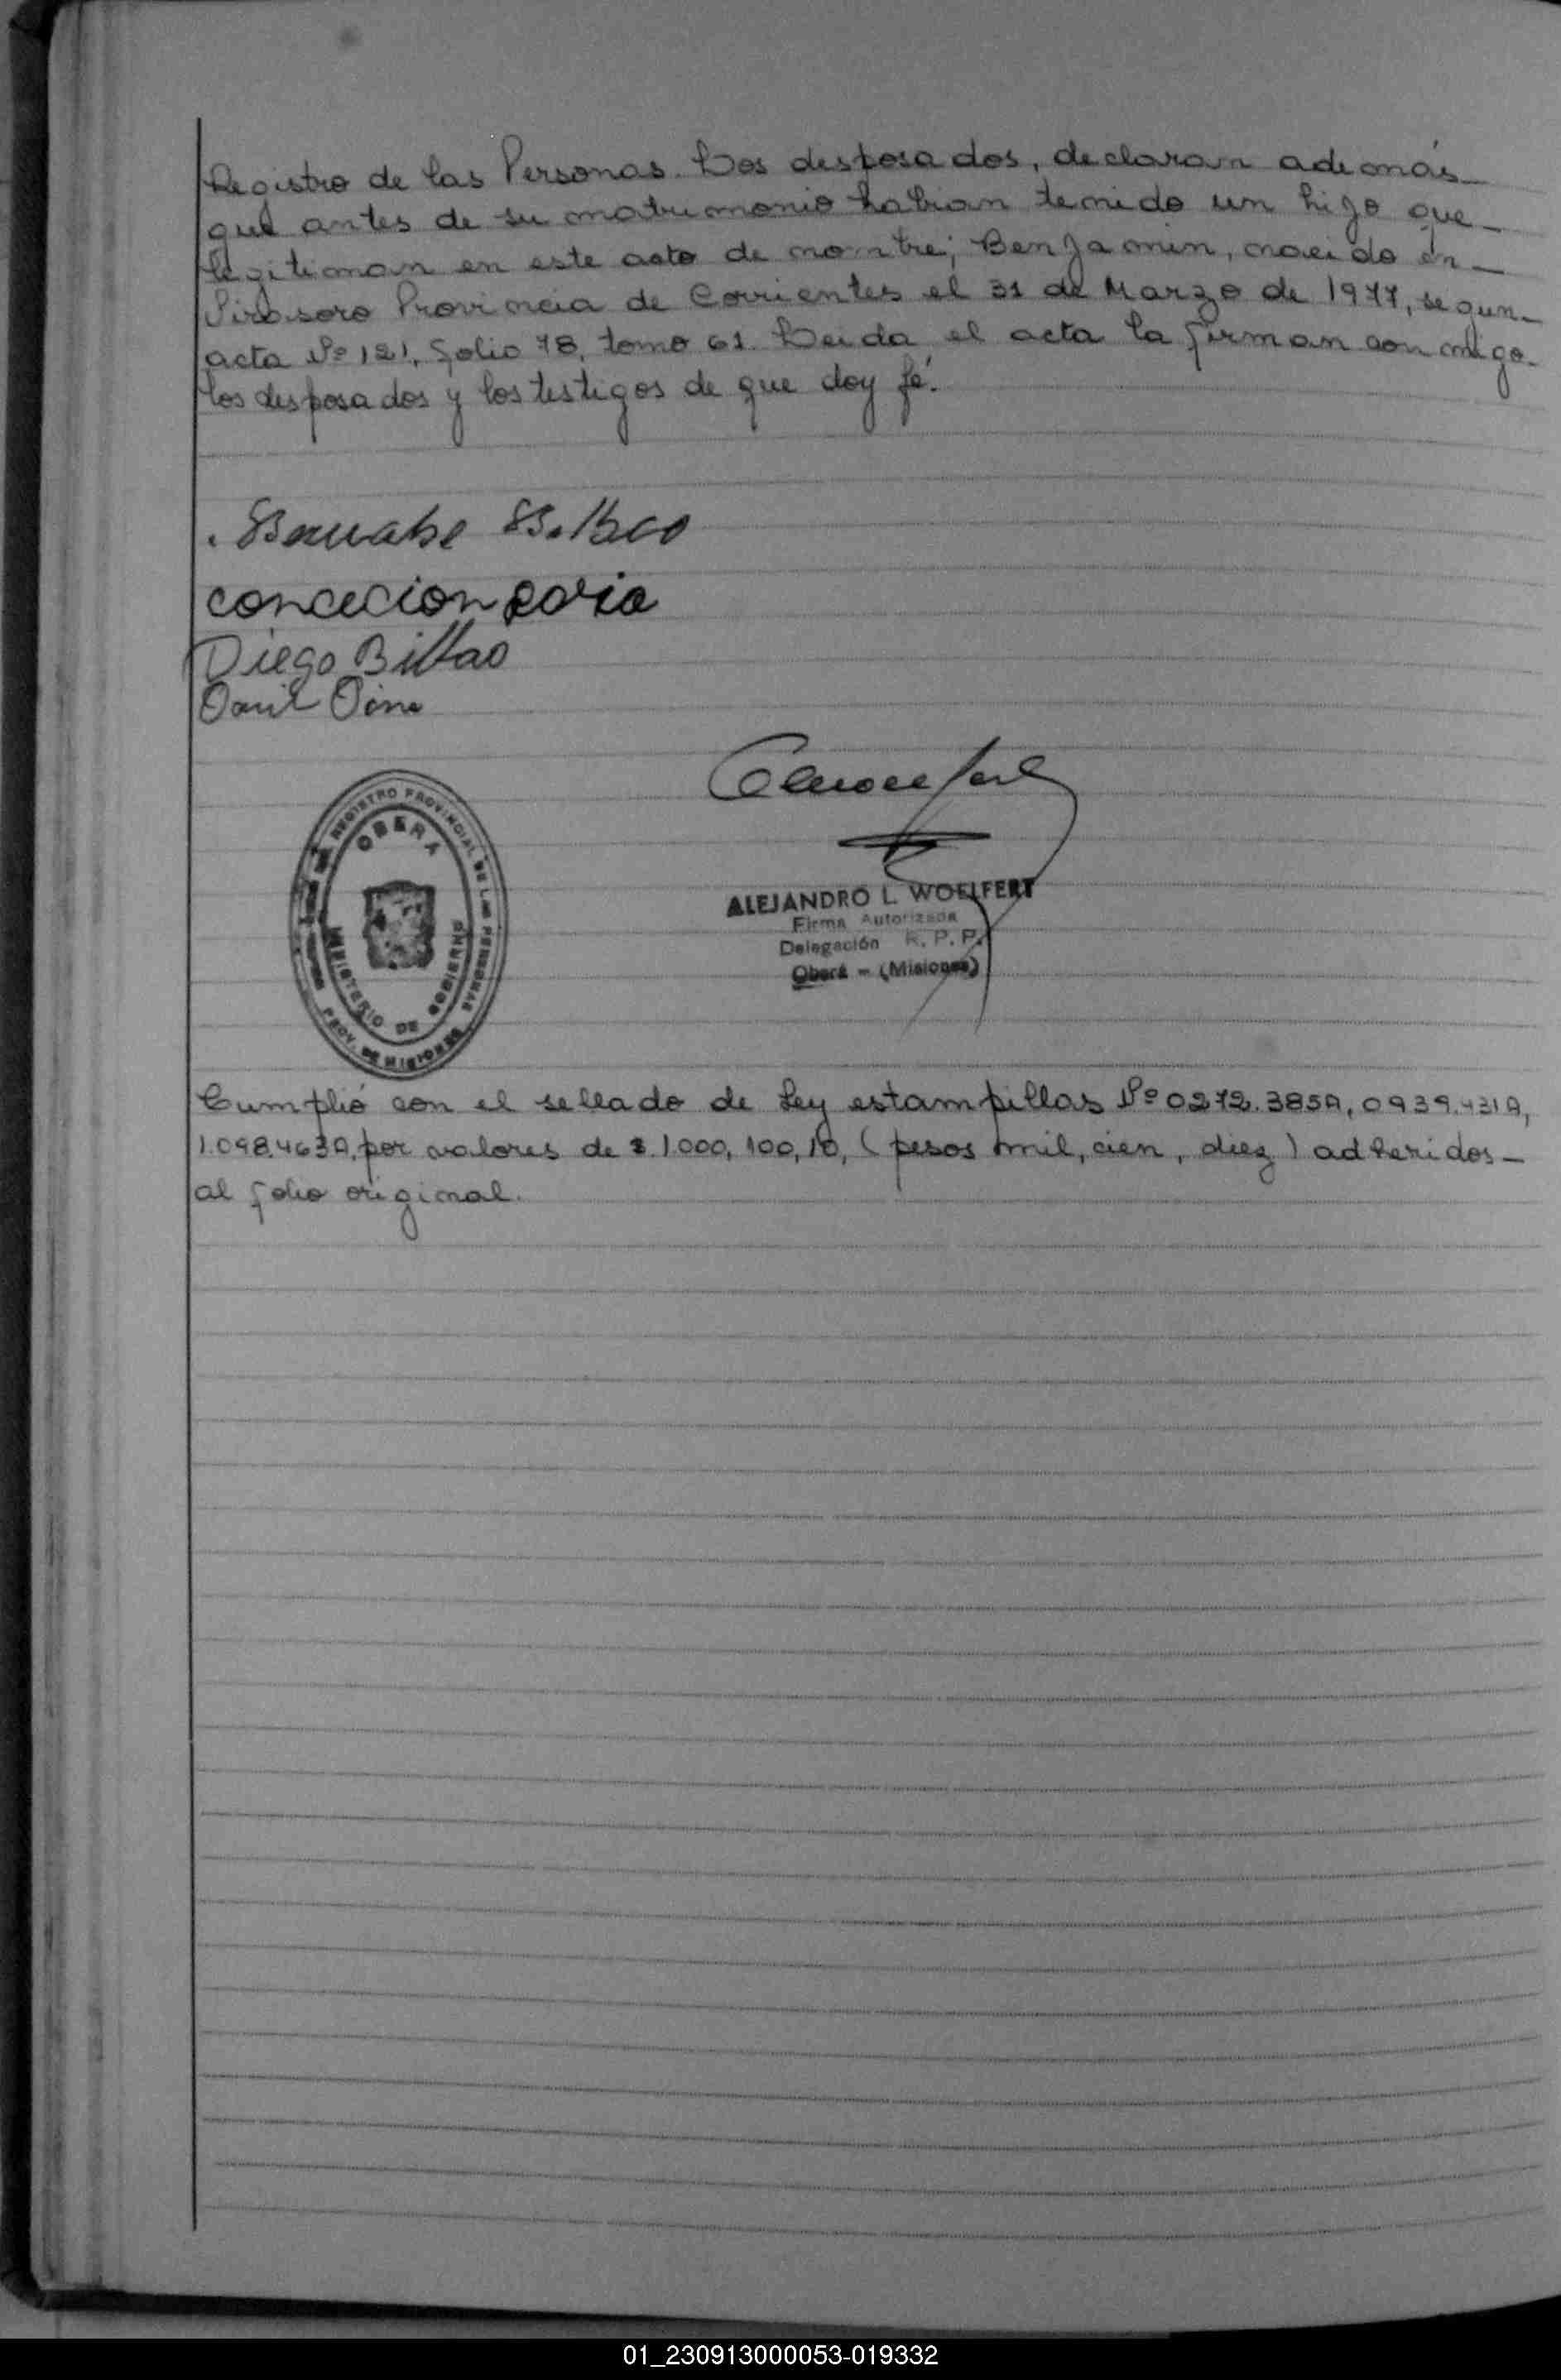 Registro de las Personas. Los desposados, declaran además
que antes de su matrimonio habian tenido un hijo que
legitiman en este acto de nombre; Benjamin, nacido en
Virasoro Provincia de Corrientes el 31 de Marzo de 1977, segun
acta Nº 121, folio 78, tomo 61. Leida el acta la firman conmigo
los desposados y los testigos de que doy fé.
Bernabe
concecion
Diego Bilbao
REGISTRO PROVINCIAL DE LAS PERSONAS
OBERA
MINISTERIO DE GOBIERNO
PROV. DE MISIONES
ALEJANDRO L. WOELFERT
Firma Autorizada
Delegación R. P. P.
Oberá - (Misiones)
Cumplió con el sellado de Ley estampillas Nº 0272.385A, 0939.431A,
1.098.463A, por valores de $ 1.000, 100, 10, (pesos mil, cien, diez) adheridos
al folio original.
01_230913000053-019332